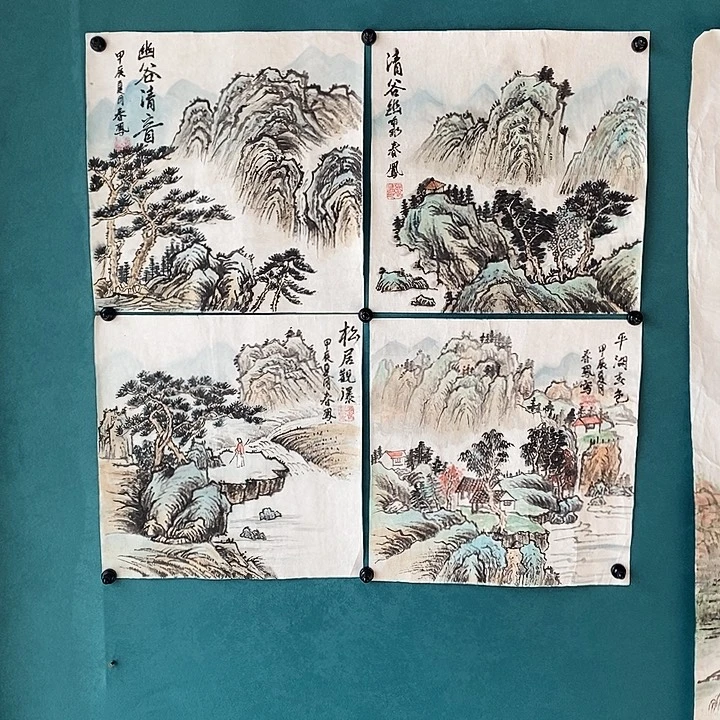 幽谷清音
甲辰夏月春鳳
清谷幽泉春鳳
松居觀瀑
甲辰夏月春鳳
平湖春色
甲辰夏月
春鳳寫